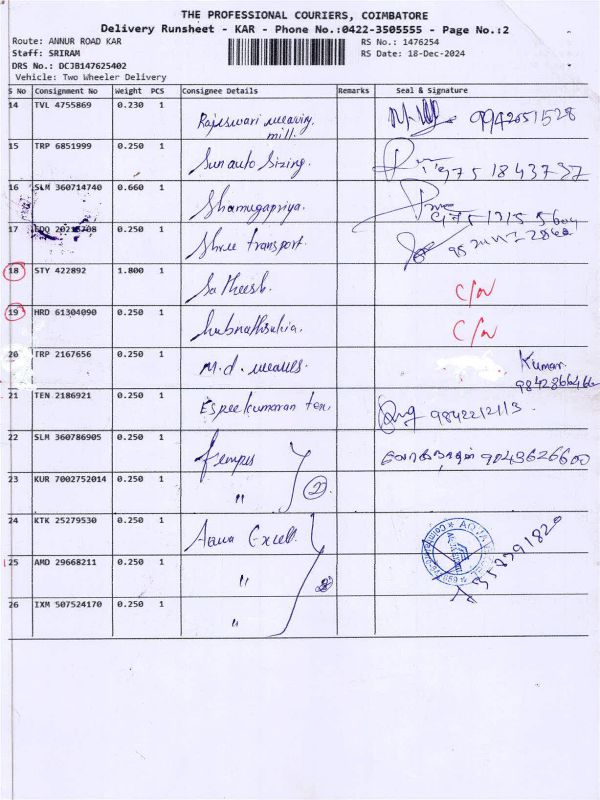 THE PROFESSIONAL COURIERS, COIMBATORE
Delivery Runsheet - KAR - Phone No.:0422-3505555 - Page No.:2
Route: ANNUR ROAD KAR
RS No.: 1476254
Staff: SRIRAM
RS Date: 18-Dec-2024
DRS No.: DCJB147625402
Vehicle: Two Wheeler Delivery
S No Consignment No Weight PCS Consignee Details Remarks Seal & Signature
14 TVL 4755869 0.230 1 Rajeswari weaving mill. 9942051528
15 TRP 6851999 0.250 1 Sun auto Sizing.
16 SLM 360714740 0.660 1 Shamugapriya.
17 0.250 1 Shree transport.
18 STY 422892 1.800 1 Satheesh. C/N
19 HRD 61304090 0.250 1 C/N
20 TRP 2167656 0.250 1 M.d. weaves. Kumar
21 TEN 2186921 0.250 1 Espee kumaran tex.
22 SLM 360786905 0.250 1 9043626600
23 KUR 7002752014 0.250 1 " 2
24 KTK 25279530 0.250 1 Excell.
25 AMD 29668211 0.250 1 "
26 IXM 507524170 0.250 1 "